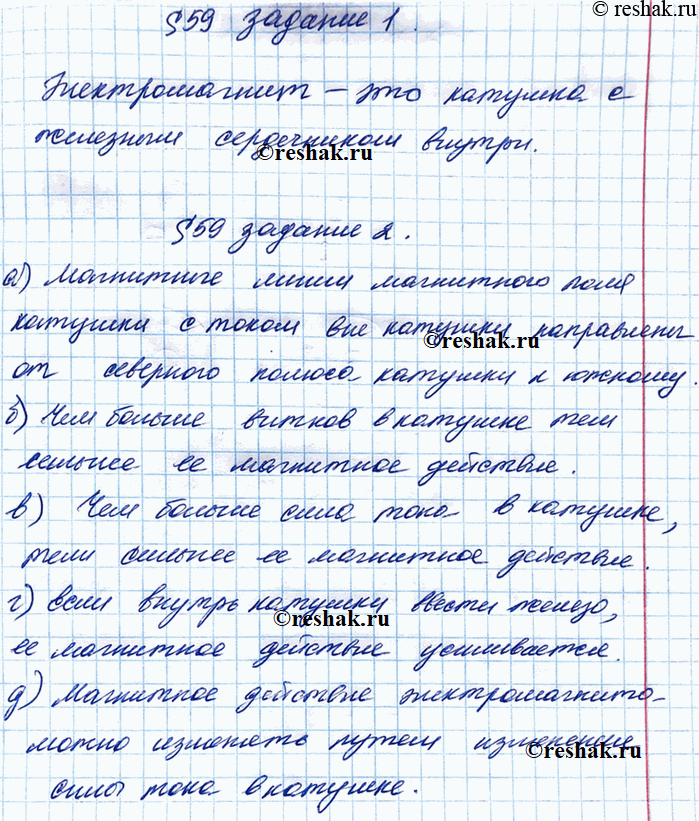 © reshak.ru
§59 задание 1.
Электромагнит – это катушка с
железным сердечником внутри.
©reshak.ru
§59 задание 2.
а) Магнитные линии магнитного поля
катушки с током вне катушки направлены
©reshak.ru
от северного полюса катушки к южному.
б) Чем больше витков в катушке тем
сильнее ее магнитное действие.
в) Чем больше сила тока в катушке,
тем сильнее ее магнитное действие.
г) Если внутрь катушки ввести железо,
©reshak.ru
ее магнитное действие усиливается.
д) Магнитное действие электромагнита
можно изменять путем изменения
©reshak.ru
силы тока в катушке.